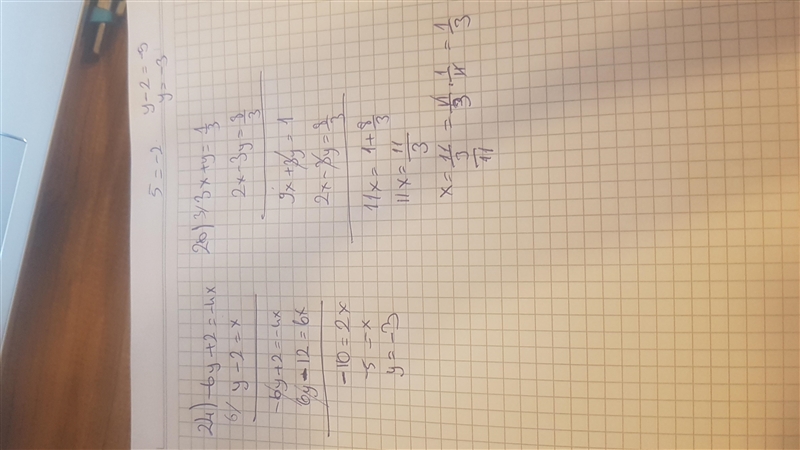 5 = -2
y - 2 = -5
y = -3
24) -6y + 2 = -4x
6/ y - 2 = x
-6y + 2 = -4x
6y - 12 = 6x
-10 = 2x
-5 = x
y = -3
26) 3/ 3x + y = 1/3
2x - 3y = 8/3
9x + 3y = 1
2x - 3y = 8/3
11x = 1 + 8/3
11x = 11/3
x = 11/3/11 = 11/3 · 1/11 = 1/3